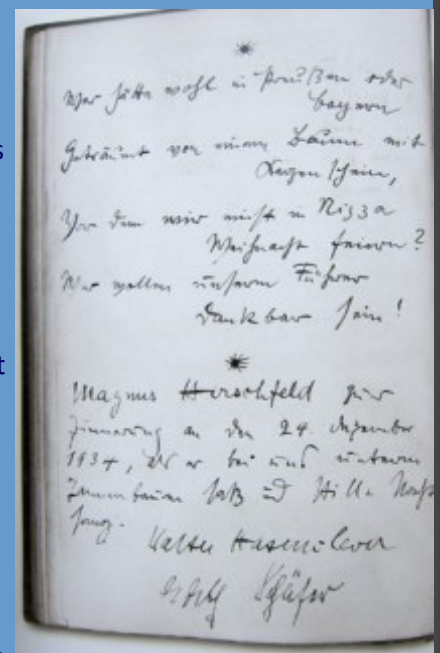 Wer hätte wohl in Preußen oder
Bayern
Geträumt von einem Baum mit
Kerzenschein,
Vor dem wir einst in Nizza
Weihnacht feiern?
Wir wollen unserm Führer
dankbar sein!
Magnus Hirschfeld zur
Erinnerung an den 24. Dezember
1934, als er bei uns unterm
Tannenbaum saß und Stille Nacht
sang.
Walter Hasenclever
Edith Schäfer